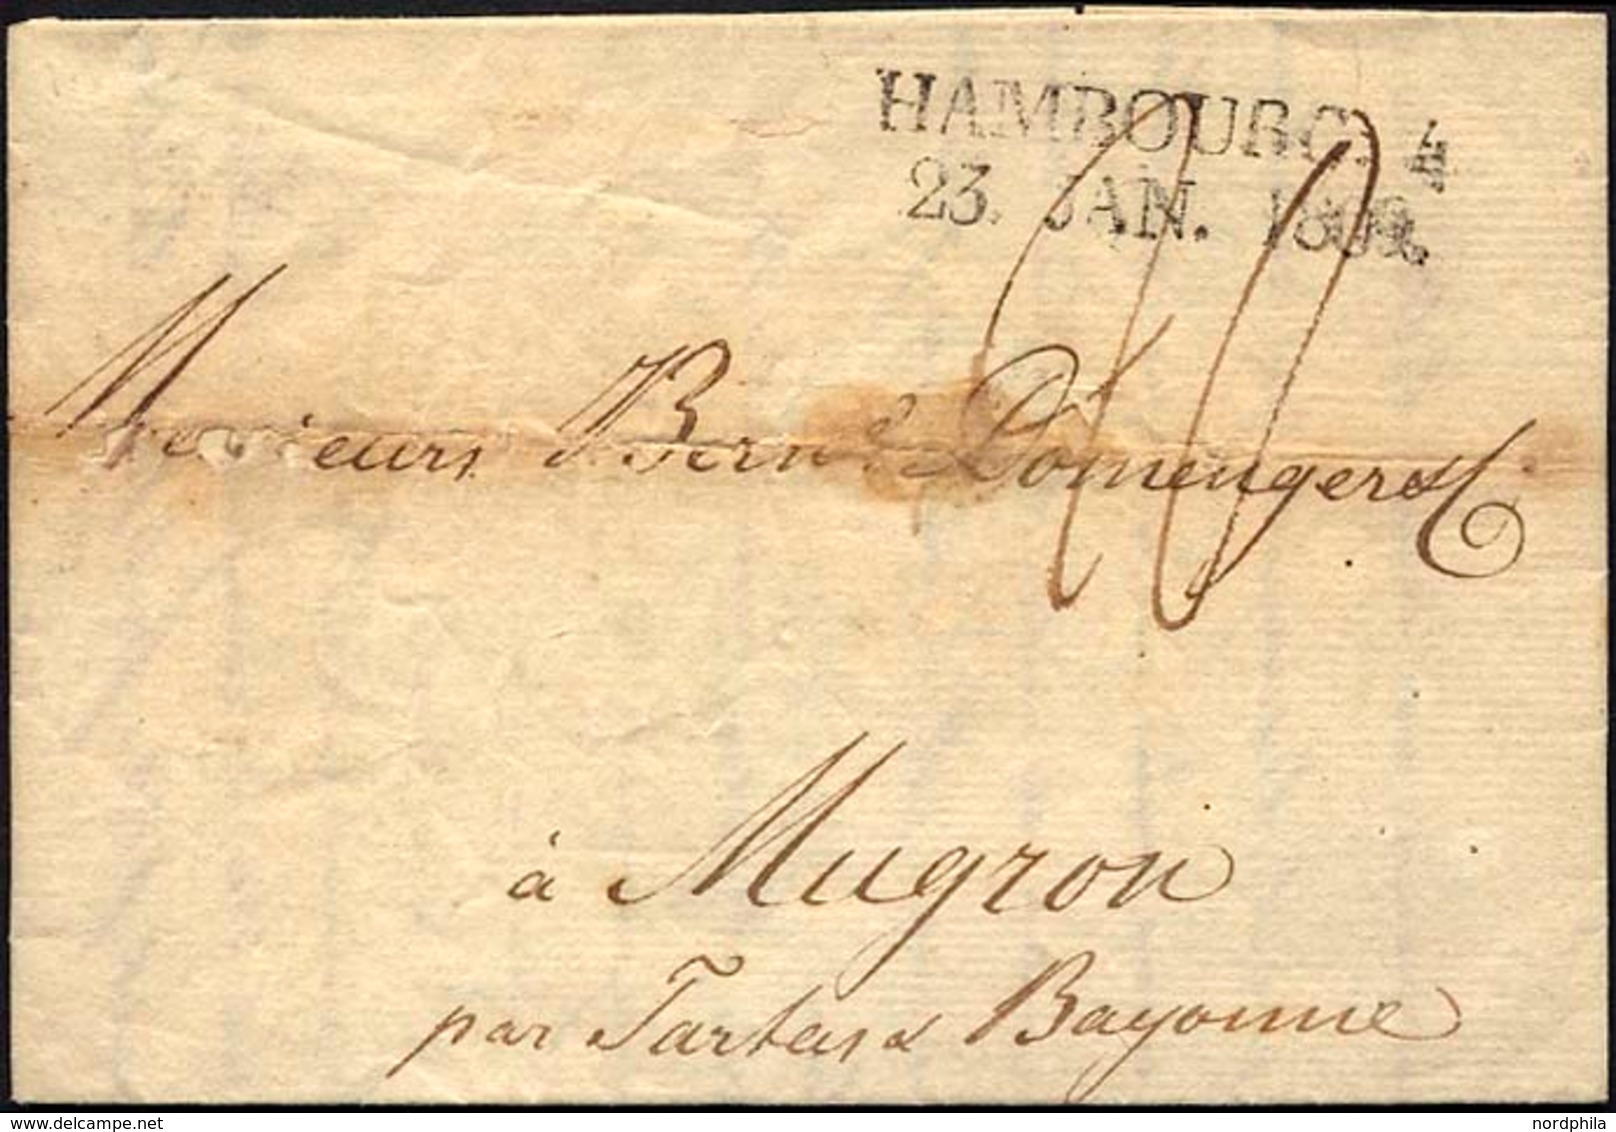 HAMBOURG. 4
23. JAN. 1809.
20
Messieurs Bern.d Domenger & C
à Mugron
par Tartas & Bayonne
delcampe.net
nordphila